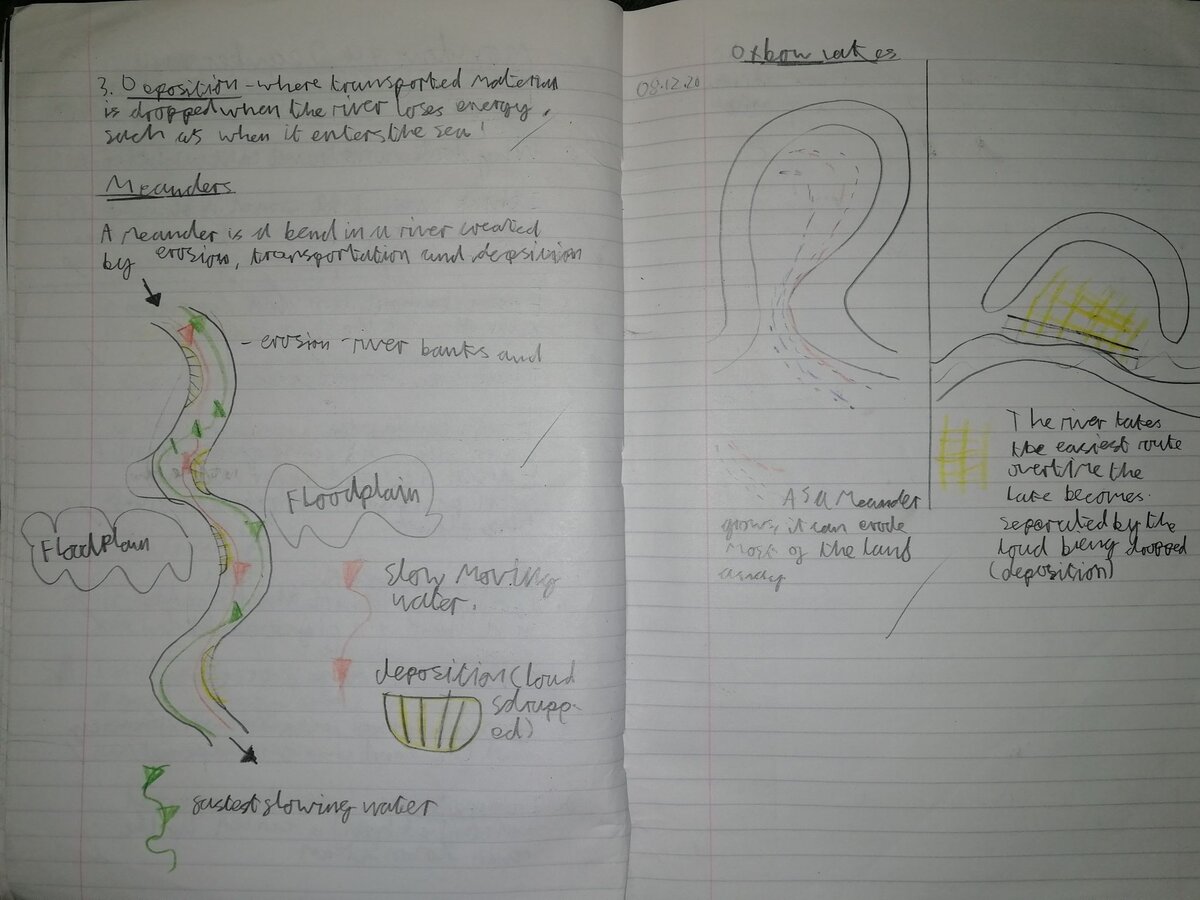 3. Deposition - where transported material
is dropped when the river loses energy,
such as when it enters the sea'
Meanders
A meander is a bend in a river created
by erosion, transportation and depsition
- erosion - river banks and
Floodplain
Floodplain
slow moving
water.
deposition (loud
sdrupp-
ed)
fastest flowing water
Oxbow lakes
08.12.20
As a Meander
grows, it can erode
most of the land
away
The river takes
the easiest route
overtime the
lake becomes.
separated by the
loud being dropped
(deposition)